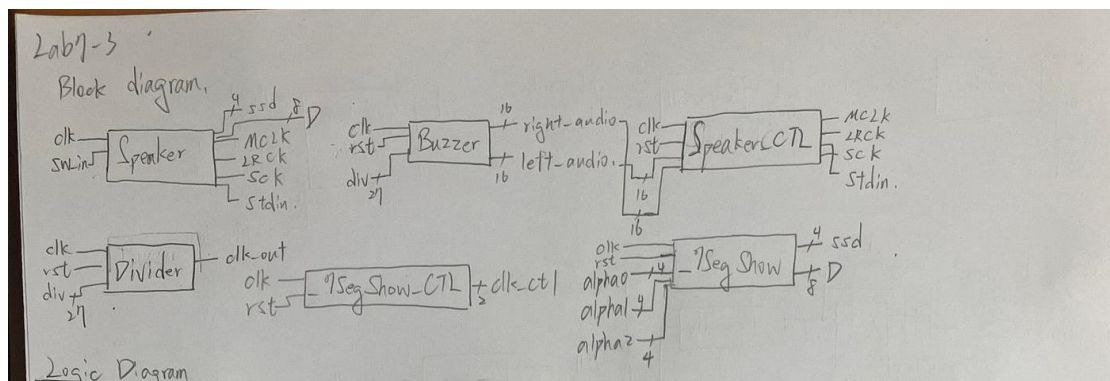 Lab7-3
Block diagram.
clk
sw_in
Speaker
4 ssd
8 D
MCLK
LRCK
SCK
Stdin.
clk
rst
div
27
Buzzer
16
right_audio
left_audio.
16
16
16
clk
rst
Speaker_CTL
MCLK
LRCK
SCK
Stdin.
clk
rst
div
27
Divider
clk_out
clk
rst
_7SegShow_CTL
2
clk_ctl
clk
rst
alpha0
4
alpha1
4
alpha2
4
_7SegShow
4 ssd
D
8
Logic Diagram